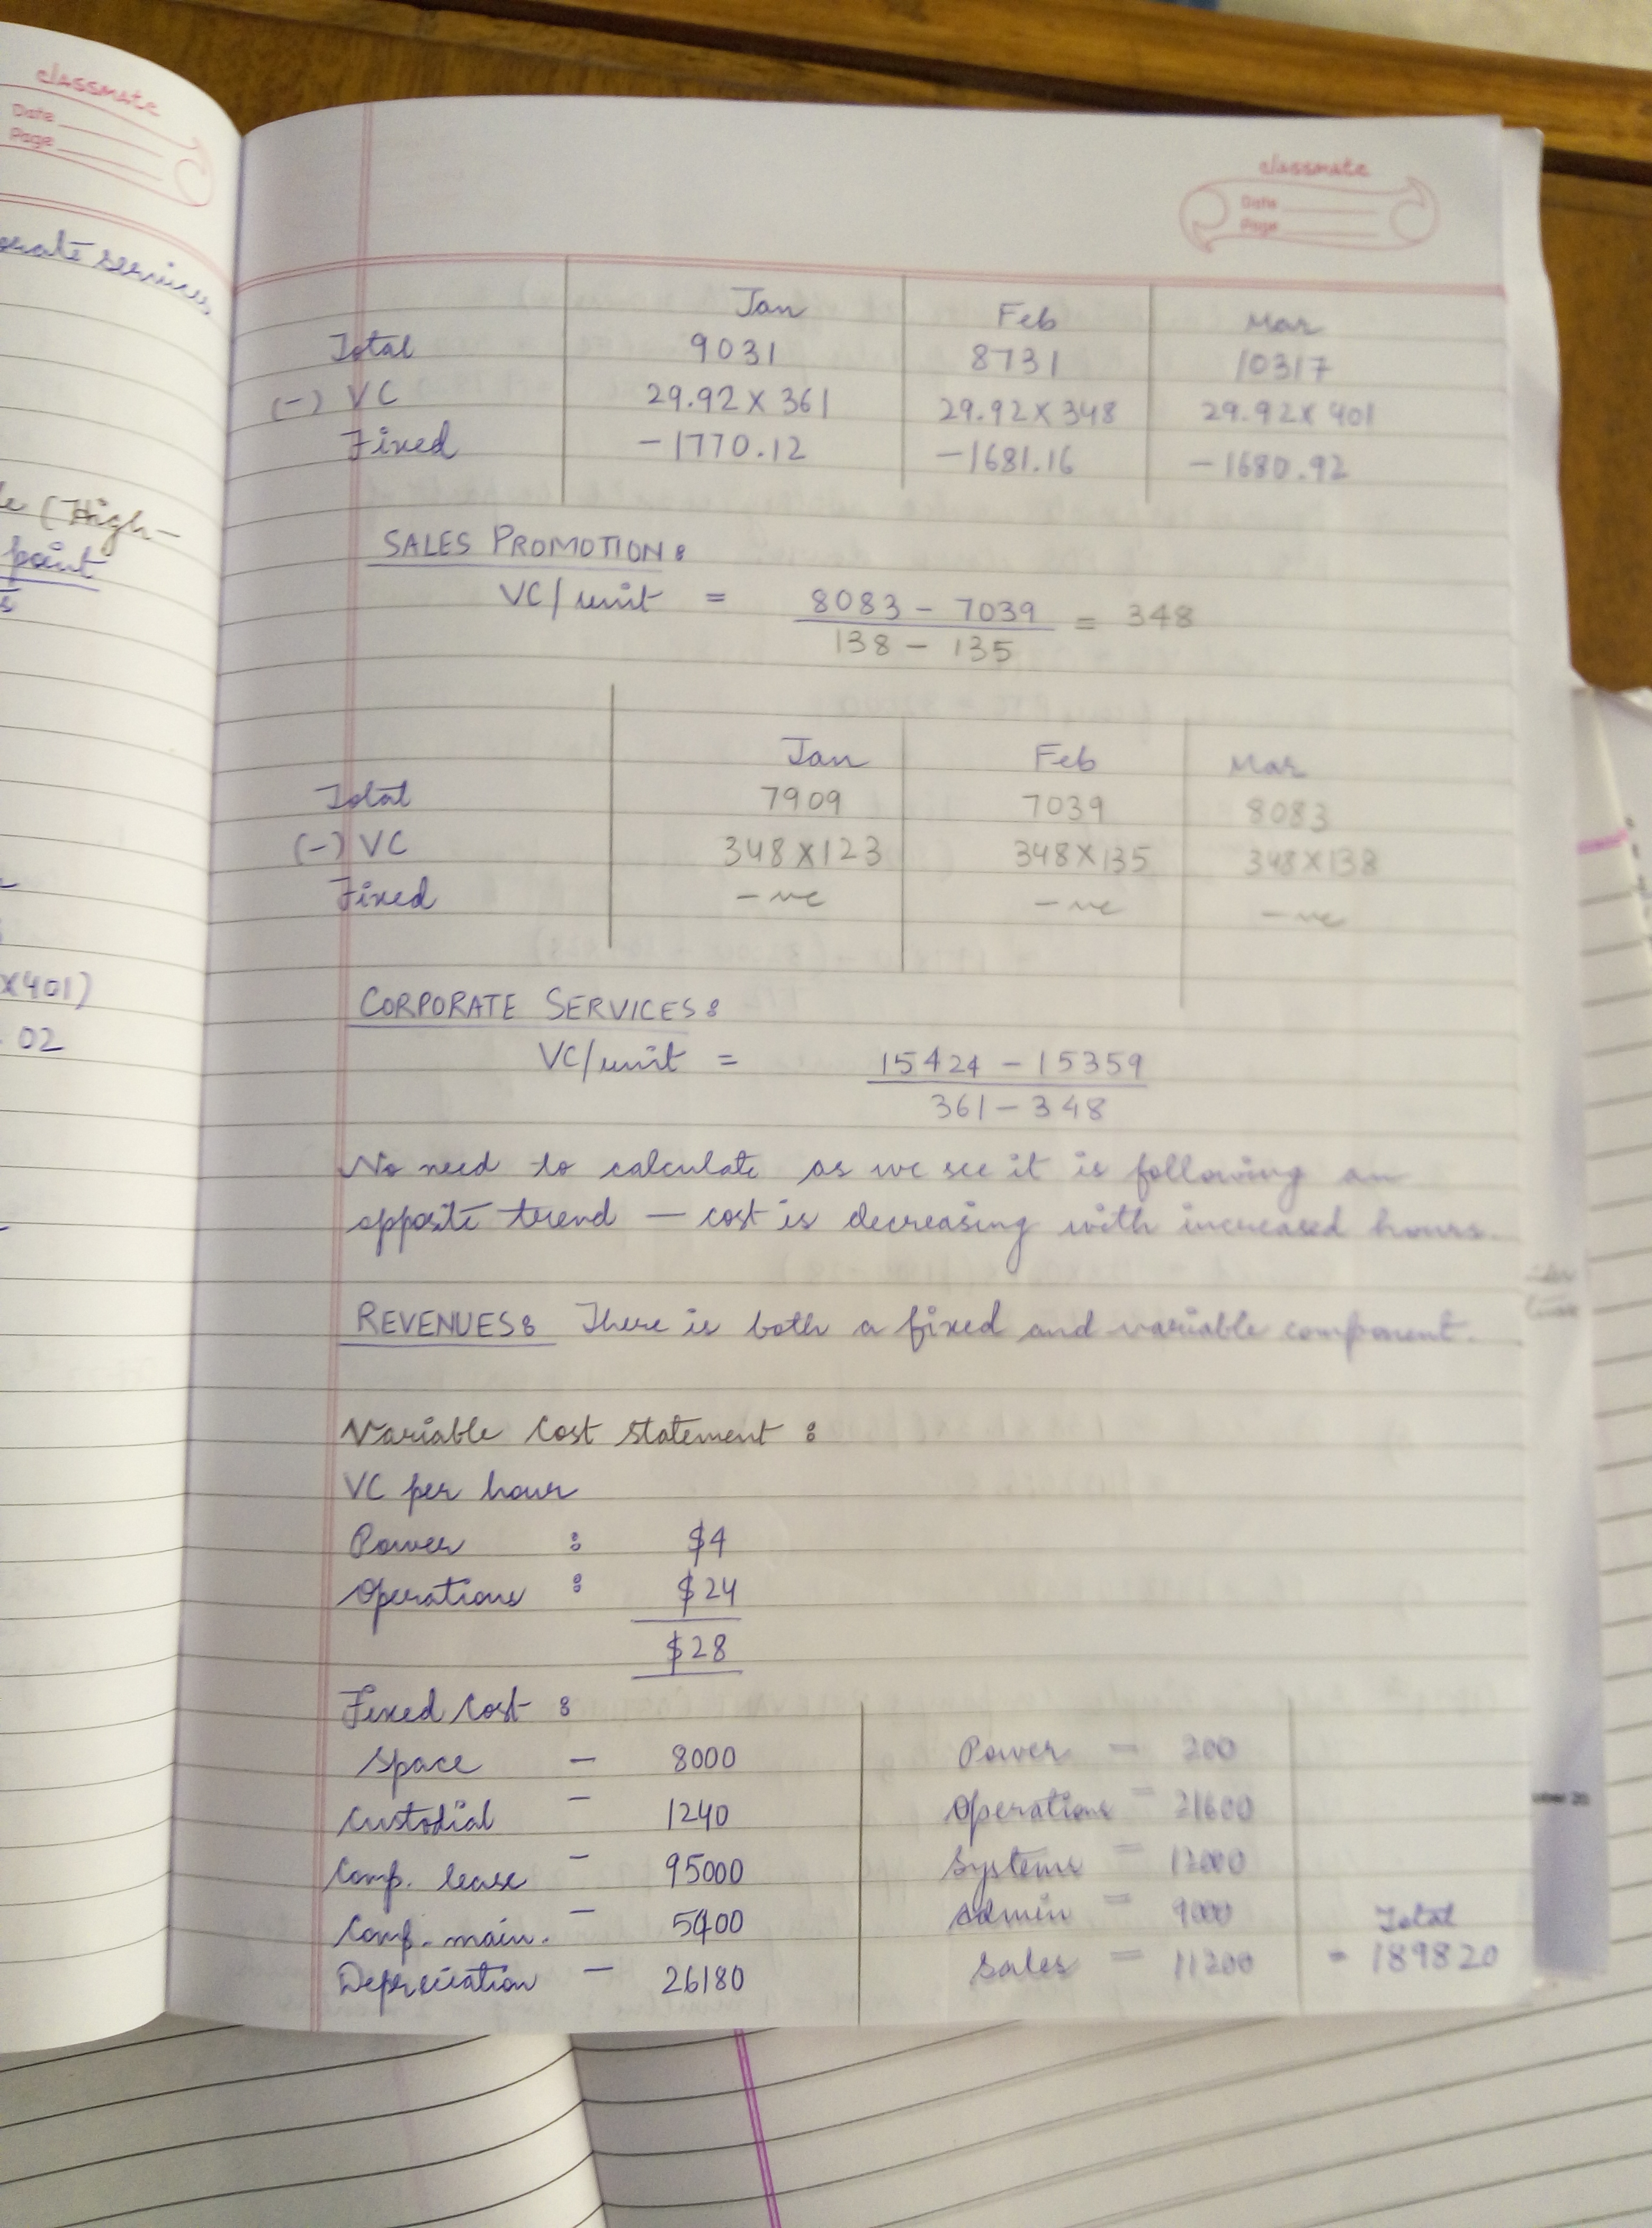 classmate
Date
Page
orate services
le (High-
point
x401)
02
classmate
Date
Page
Jan Feb Mar
Total 9031 8731 10317
(-) VC 29.92 x 361 29.92 x 348 29.92 x 401
Fixed -1770.12 -1681.16 -1680.92
SALES PROMOTION:
VC/unit = 8083 - 7039 = 348
138 - 135
Jan Feb Mar
Total 7909 7039 8083
(-) VC 348 x 123 348 x 135 348 x 138
Fixed -ve -ve -ve
CORPORATE SERVICES:
VC/unit = 15424 - 15359
361 - 348
No need to calculate as we see it is following an
opposite trend - cost is decreasing with increased hours.
REVENUES: There is both a fixed and variable component.
Variable Cost statement :
VC per hour
Power : $4
Operations : $24
$28
Fixed Cost :
Space - 8000 Power - 200
Custodial - 1240 Operations - 21600
Comp. lease - 95000 Systems - 12000
Comp. main. - 5400 Admin - 9000 Total
Depreciation - 26180 Sales - 11200 = 189820